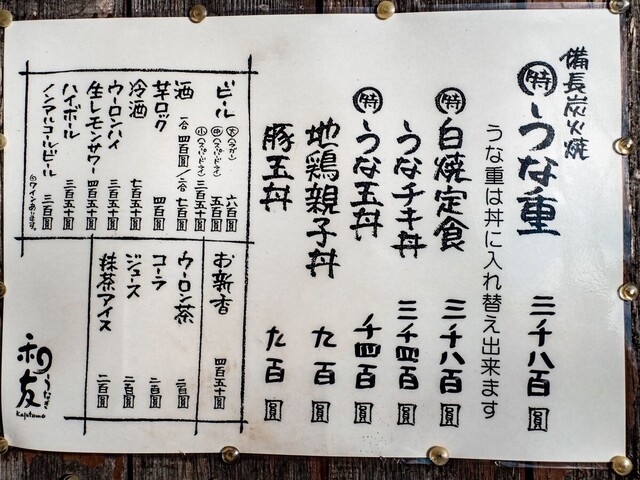 備長炭火焼
特 うな重 三千八百圓
うな重は丼に入れ替え出来ます
特 白焼定食 三千八百圓
うなチキ丼 三千四百圓
特 うな玉丼 千四百圓
地鶏親子丼 九百圓
豚玉丼 九百圓
ビール 大(ラガー) 六百圓
中(スーパードライ) 五百圓
小(スーパードライ) 三百五十圓
酒 一合 四百圓/二合 七百圓
芋ロック 四百圓
冷酒 七百五十圓
ウーロンハイ 三百五十圓
生レモンサワー 四百五十圓
ハイボール 三百五十圓
ノンアルコールビール 三百圓
ワインあります。
お新香 四百五十圓
ウーロン茶 二百圓
コーラ 二百圓
ジュース 二百圓
抹茶アイス 二百圓
うなぎ
和友
Kazutomo